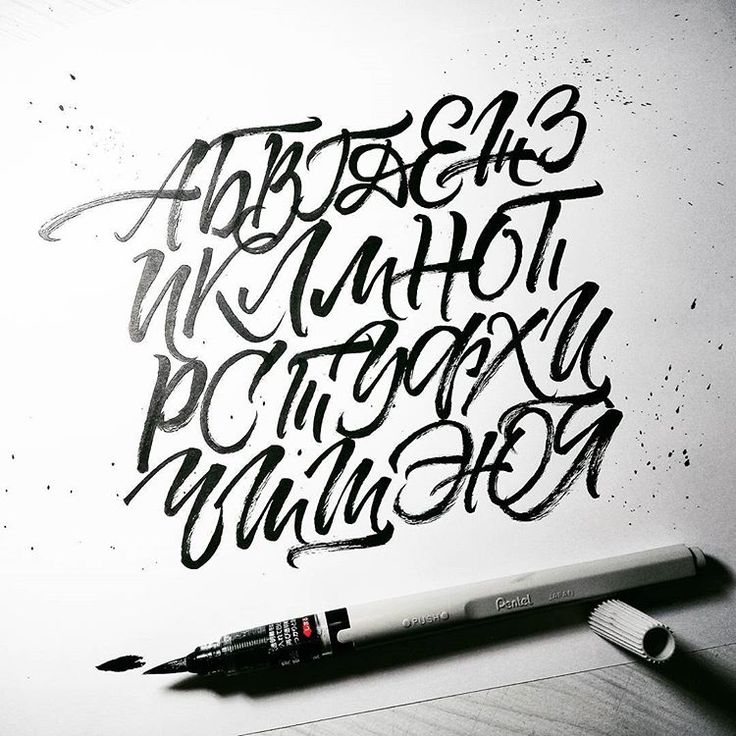 АБВГДЕЖЗ
ИКЛМНОП
РСТУФХЦ
ЧШЩЭЮЯ
PUSH
Pentel
JAPAN